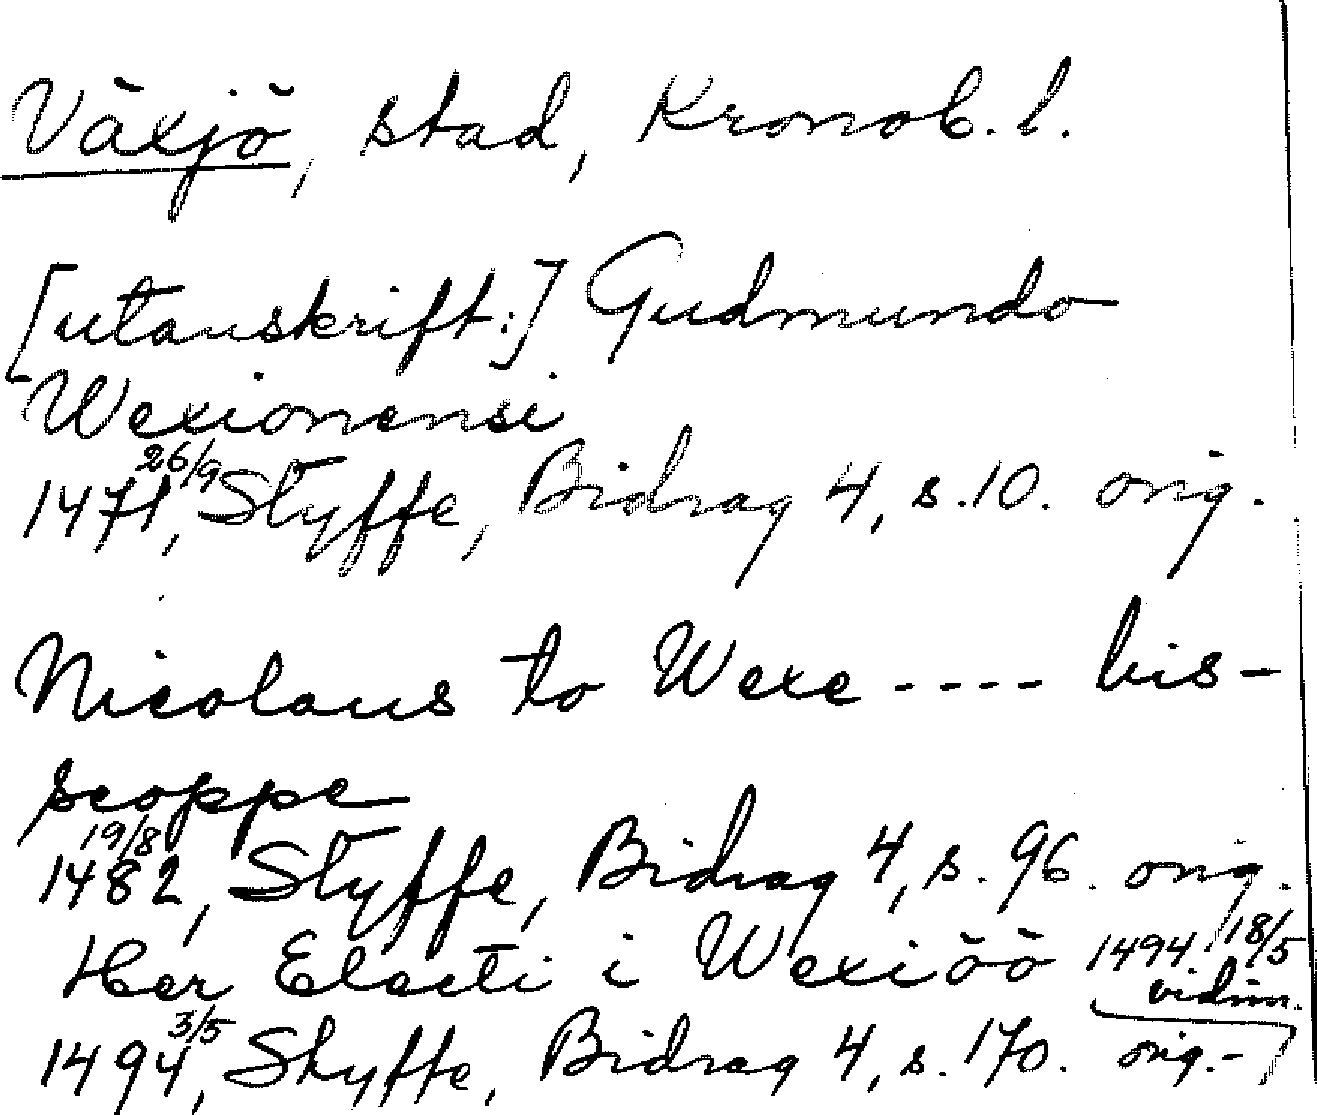 Växjö, stad, Kronob. l.
[utanskrift:] Gudmundo
Wexionensi
1471 26/9, Styffe, Bidrag 4, s. 10. orig.
Nicolaus to Wexe ---- bis-
scoppe
1482 19/8, Styffe, Bidrag 4, s. 96. orig.
Her Electi i Wexiöö 1494 18/5
vidim.
1494 3/5, Styffe, Bidrag 4, s. 170. orig.-